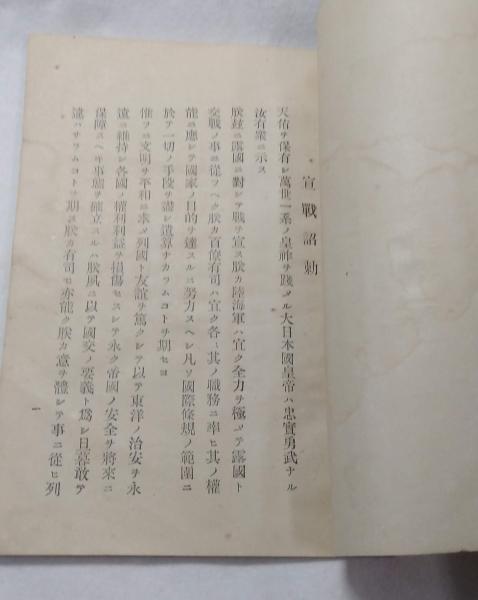 宣戰詔勅
天佑ヲ保有シ萬世一系ノ皇祚ヲ踐メル大日本國皇帝ハ忠實勇武ナル
汝有衆ニ示ス
朕玆ニ露國ニ對シテ戰ヲ宣ス朕カ陸海軍ハ宜ク全力ヲ極メテ露國ト
交戰ノ事ニ從フヘク朕カ百僚有司ハ宜ク各〻其ノ職務ニ率ヒ其ノ權
能ニ應シテ國家ノ目的ヲ達スルニ努力スヘシ凡ソ國際條規ノ範圍ニ
於テ一切ノ手段ヲ盡シ遺算ナカラムコトヲ期セヨ
惟フニ文明ヲ平和ニ求メ列國ト友誼ヲ篤クシテ以テ東洋ノ治安ヲ永
遠ニ維持シ各國ノ權利利益ヲ損傷セスシテ永ク帝國ノ安全ヲ將來ニ
保障スヘキ事態ヲ確立スルハ朕夙ニ以テ國交ノ要義ト爲シ旦暮敢テ
違ハサラムコトヲ期ス朕カ有司モ亦能ク朕カ意ヲ體シテ事ニ從ヒ列
一